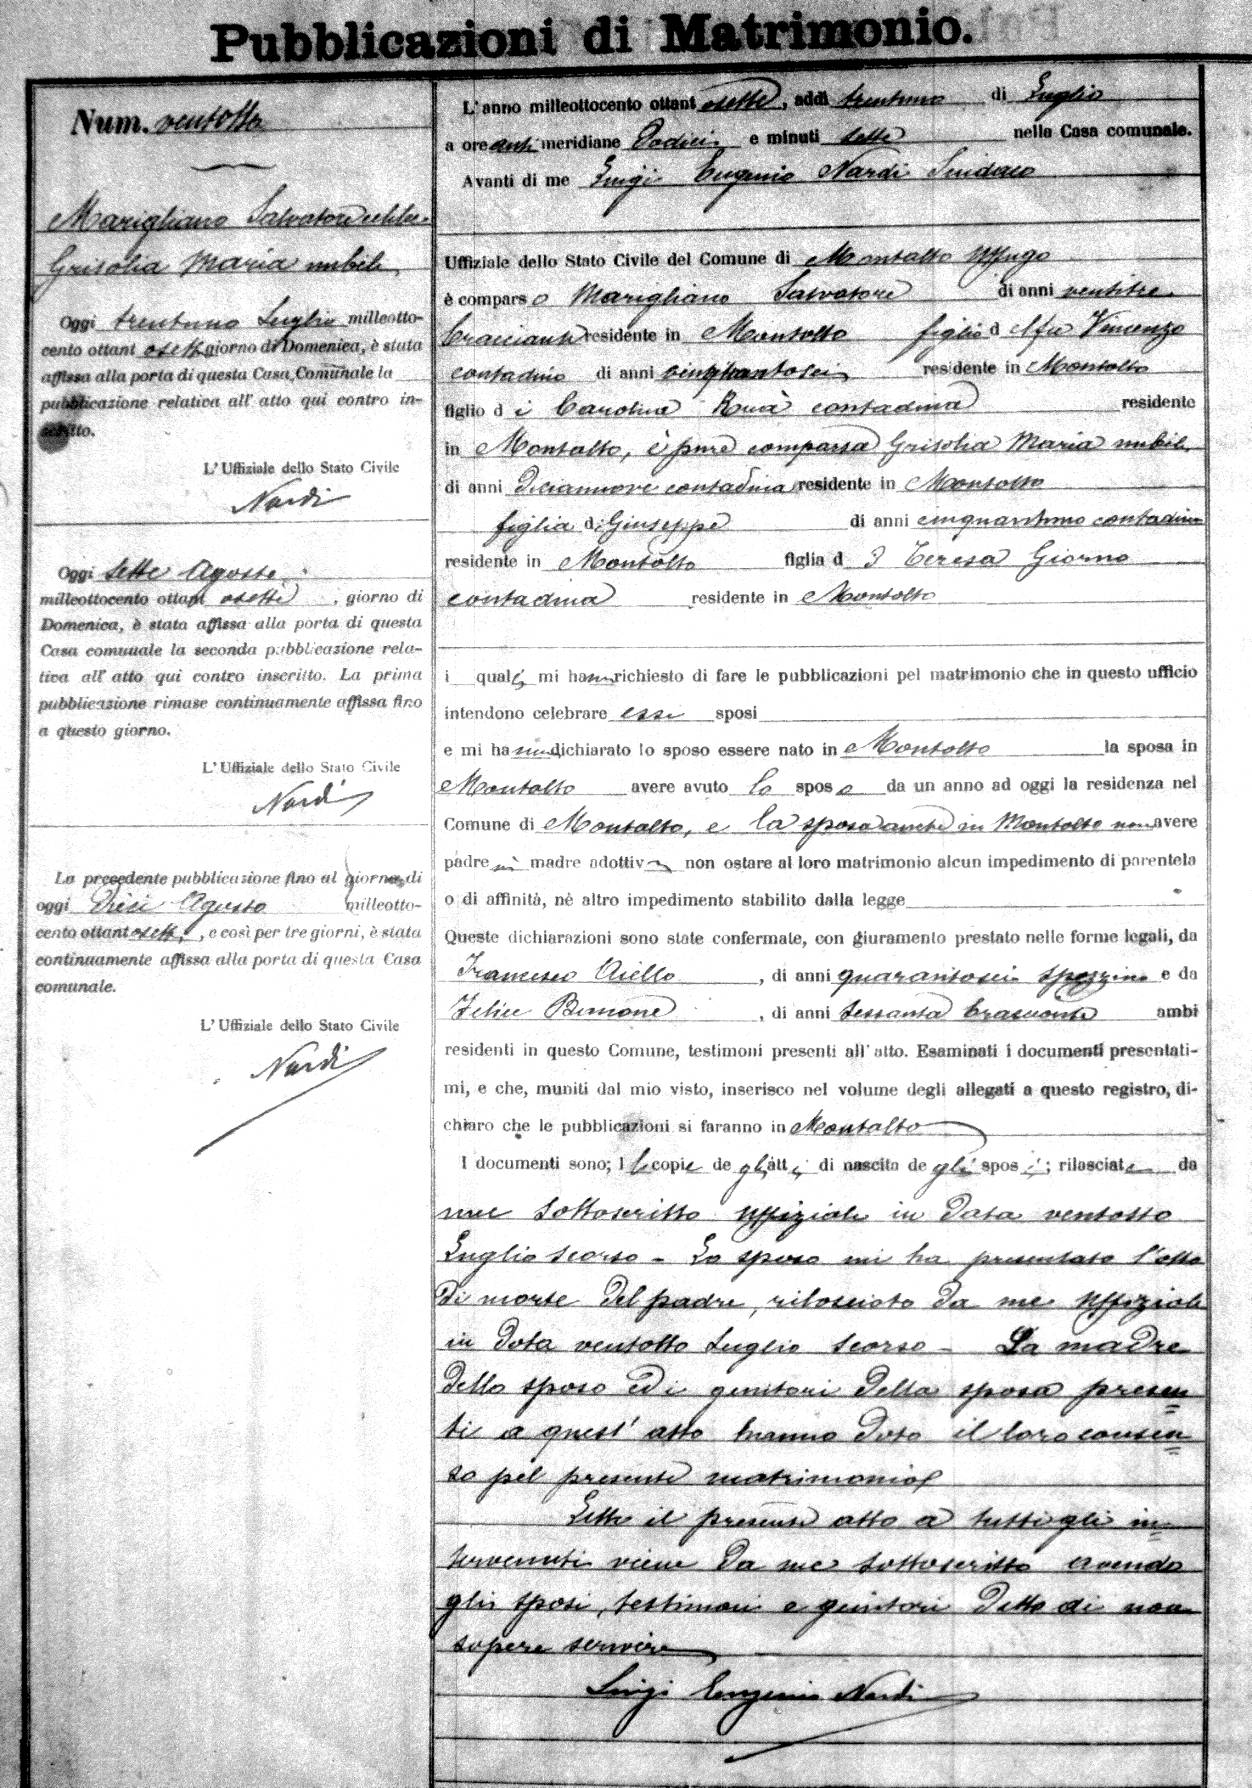 Pubblicazioni di Matrimonio.
Num. ventotto
Marigliano Salvatore celibe
Grisolia Maria nubile
Oggi trentuno Luglio milleotto-
cento ottantasette giorno di Domenica, è stata
affissa alla porta di questa Casa Comunale la
pubblicazione relativa all' atto qui contro in-
scritto.
L' Uffiziale dello Stato Civile
Nardi
Oggi sette Agosto
milleottocento ottant asette, giorno di
Domenica, è stata affissa alla porta di questa
Casa comunale la seconda pubblicazione rela-
tiva all' atto qui contro inscritto. La prima
pubblicazione rimase continuamente affissa fino
a questo giorno.
L' Uffiziale dello Stato Civile
Nardi
La precedente pubblicazione fino al giorno di
oggi dieci Agosto milleotto-
cento ottantasette, e così per tre giorni, è stata
continuamente affissa alla porta di questa Casa
comunale.
L' Uffiziale dello Stato Civile
Nardi
L' anno milleottocento ottant asette, addì trentuno di Luglio
a ore anti meridiane dodici e minuti sette nella Casa comunale.
Avanti di me Luigi Eugenio Nardi Sindaco
Uffiziale dello Stato Civile del Comune di Montalto Uffugo
è compars o Marigliano Salvatore di anni ventitre
bracciante residente in Montalto figlio d el fu Vincenzo
contadino di anni cinquantasei residente in Montalto
figlio d i Carolina Ruà contadina residente
in Montalto, è pure comparsa Grisolia Maria nubile
di anni diciannove contadina residente in Montalto
figlia di Giuseppe di anni cinquantuno contadino
residente in Montalto figlia d i Teresa Giorno
contadina residente in Montalto
i quali mi hanno richiesto di fare le pubblicazioni pel matrimonio che in questo ufficio
intendono celebrare essi sposi
e mi hanno dichiarato lo sposo essere nato in Montalto la sposa in
Montalto avere avuto lo spos o da un anno ad oggi la residenza nel
Comune di Montalto, e la sposa anche in Montalto non avere
padre nè madre adottiv i non ostare al loro matrimonio alcun impedimento di parentela
o di affinità, nè altro impedimento stabilito dalla legge
Queste dichiarazioni sono state confermate, con giuramento prestato nelle forme legali, da
Francesco Aiello, di anni quarantasei spazzino e da
Felice, di anni sessanta bracciante ambi
residenti in questo Comune, testimoni presenti all' atto. Esaminati i documenti presentati-
mi, e che, muniti dal mio visto, inserisco nel volume degli allegati a questo registro, di-
chiaro che le pubblicazioni si faranno in Montalto
I documenti sono; l e copie de gli atti di nascita de gli spos i; rilasciate da
me sottoscritto Uffiziale in data ventotto
Luglio scorso - Lo sposo mi ha presentato l'atto
di morte del padre, rilasciato da me Uffiziale
in data ventotto Luglio scorso - La madre
dello sposo ed i genitori della sposa presen
ti a quest' atto hanno dato il loro consen
so pel presente matrimonio
Letto il presente atto a tutti gli in
tervenuti viene da me sottoscritto avendo
gli sposi, testimoni e genitori detto di non
sapere scrivere
Luigi Eugenio Nardi